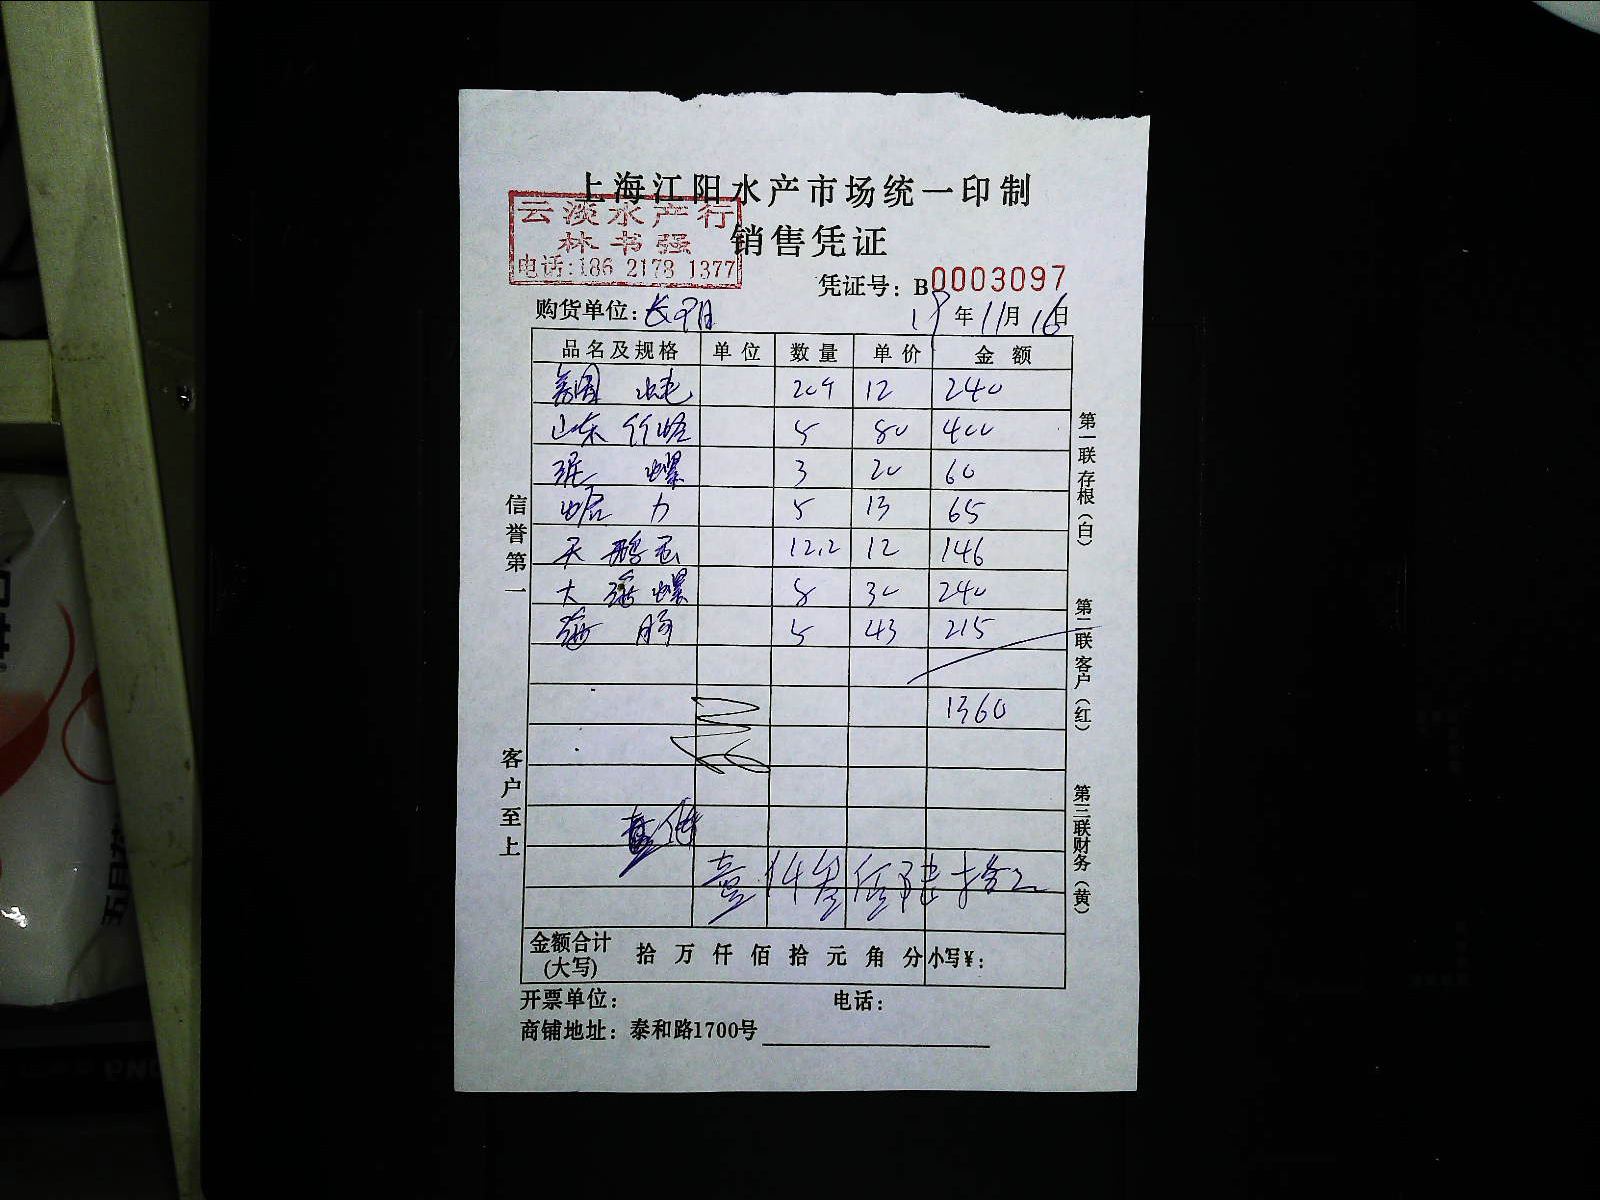 上海江阳水产市场统一印制
云淡水产行
林书强
电话:186 2178 1377
销售凭证
凭证号：B0003097
购货单位：长阳 19年11月16日
品名及规格 单位 数量 单价 金额
12 240
山东竹蛏 5 80 400
螺 3 20 60
蛤力 5 13 65
天鹅蛋 12.2 12 146
大海螺 8 30 240
海肠 5 43 215
1360
壹仟
壹仟叁佰陆拾元
金额合计(大写) 拾 万 仟 佰 拾 元 角 分 小写￥：
开票单位： 电话：
商铺地址：泰和路1700号
信誉第一
客户至上
第一联存根（白）
第二联客户（红）
第三联财务（黄）